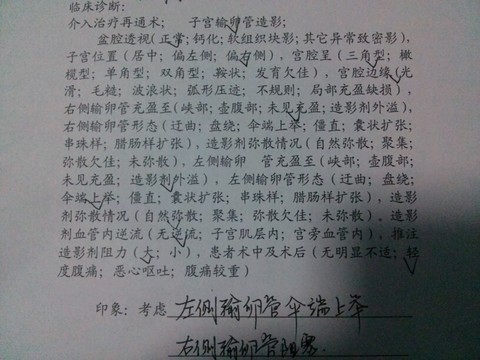 临床诊断:
介入治疗再通术; 子宫输卵管造影;
盆腔透视(正常; 钙化; 软组织块影; 其它异常致密影),
子宫位置(居中; 偏左侧; 偏右侧), 宫腔呈(三角型; 橄
榄型; 单角型; 双角型; 鞍状; 发育欠佳), 宫腔边缘(光
滑; 毛糙; 波浪状; 弧形压迹; 不规则; 局部充盈缺损),
右侧输卵管充盈至(峡部; 壶腹部; 未见充盈; 造影剂外溢),
右侧输卵管形态(迂曲; 盘绕; 伞端上举; 僵直; 囊状扩张;
串珠样; 腊肠样扩张), 造影剂弥散情况(自然弥散; 聚集;
弥散欠佳; 未弥散), 左侧输卵 管充盈至(峡部; 壶腹部;
未见充盈; 造影剂外溢), 左侧输卵管形态(迂曲; 盘绕;
伞端上举; 僵直; 囊状扩张; 串珠样; 腊肠样扩张), 造影
剂弥散情况(自然弥散; 聚集; 弥散欠佳; 未弥散). 造影
剂血管内逆流(无逆流; 子宫肌层内; 宫旁血管内), 推注
造影剂阻力(大; 小), 患者术中及术后(无明显不适; 轻
度腹痛; 恶心呕吐; 腹痛较重)
印象: 考虑 左侧输卵管伞端上举
右侧输卵管阻塞.